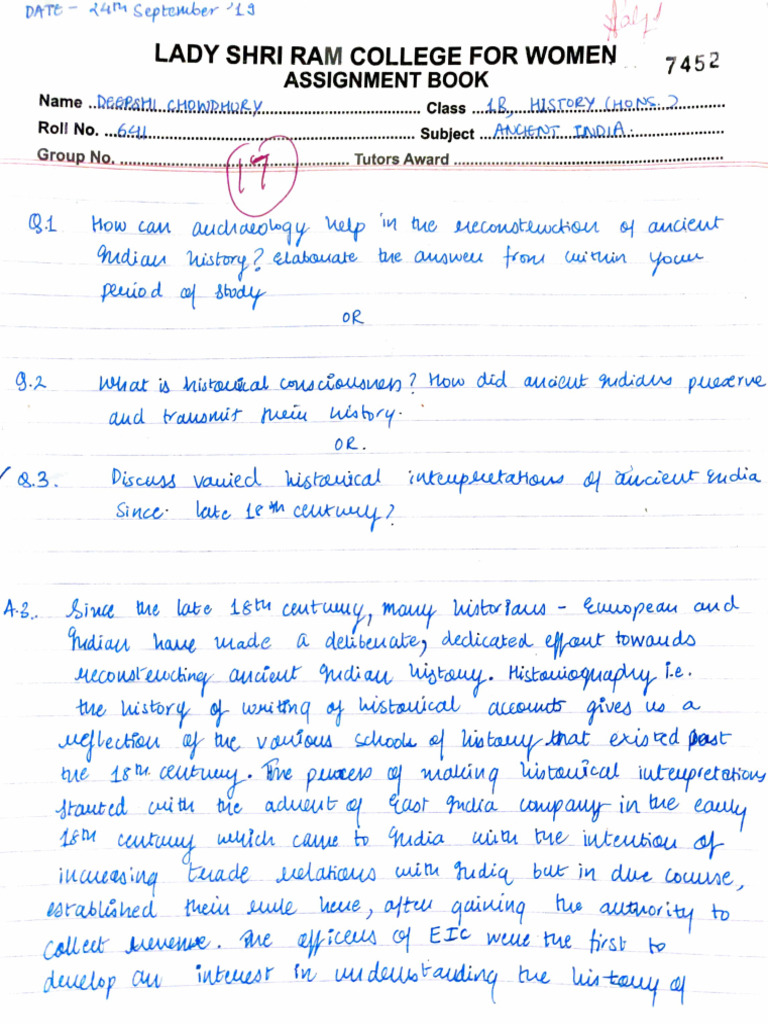 DATE - 24th September '19
LADY SHRI RAM COLLEGE FOR WOMEN
7452
ASSIGNMENT BOOK
Name ..DEEPSHI CHOWDHURY.. Class ..1B, HISTORY (HONS.)..
Roll No. ..641.. Subject ..ANCIENT INDIA..
Group No. .......... Tutors Award ..........
17
Q.1 How can archaeology help in the reconstruction of ancient
Indian history? Elaborate the answer from within your
period of study
OR
Q.2 What is historical consciousness? How did ancient Indians preserve
and transmit their history.
OR.
✓ Q.3. Discuss varied historical interpretations of ancient India
since late 18th century?
A.3.. Since the late 18th century, many historians - European and
Indian have made a deliberate, dedicated effort towards
reconstructing ancient Indian history. Historiography i.e.
the history of writing of historical accounts gives us a
reflection of the various schools of history that existed post
the 18th century. The process of making historical interpretations
started with the advent of East India company in the early
18th century which came to India with the intention of
increasing trade relations with India but in due course,
established their rule here, after gaining the authority to
collect revenue. The officers of EIC were the first to
develop an interest in understanding the history of